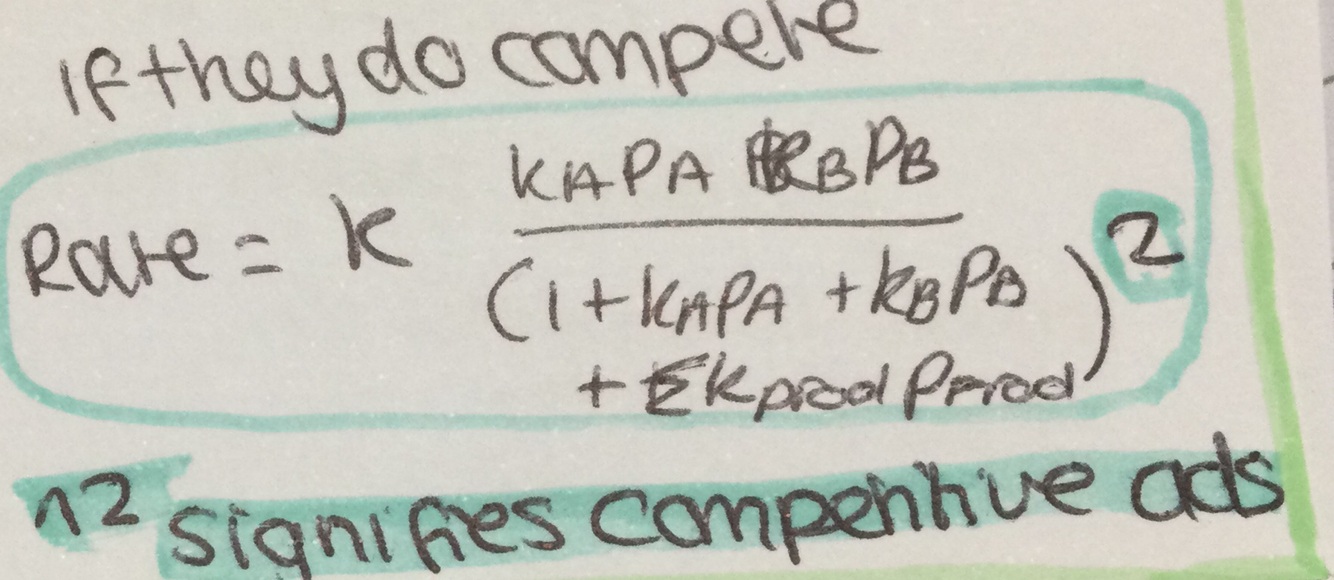 If they do compete
Rate = K KAPA KBPB
(1 + KAPA + KBPB
+ ΣKprod Pprod)²
^2 signifies competitive ads